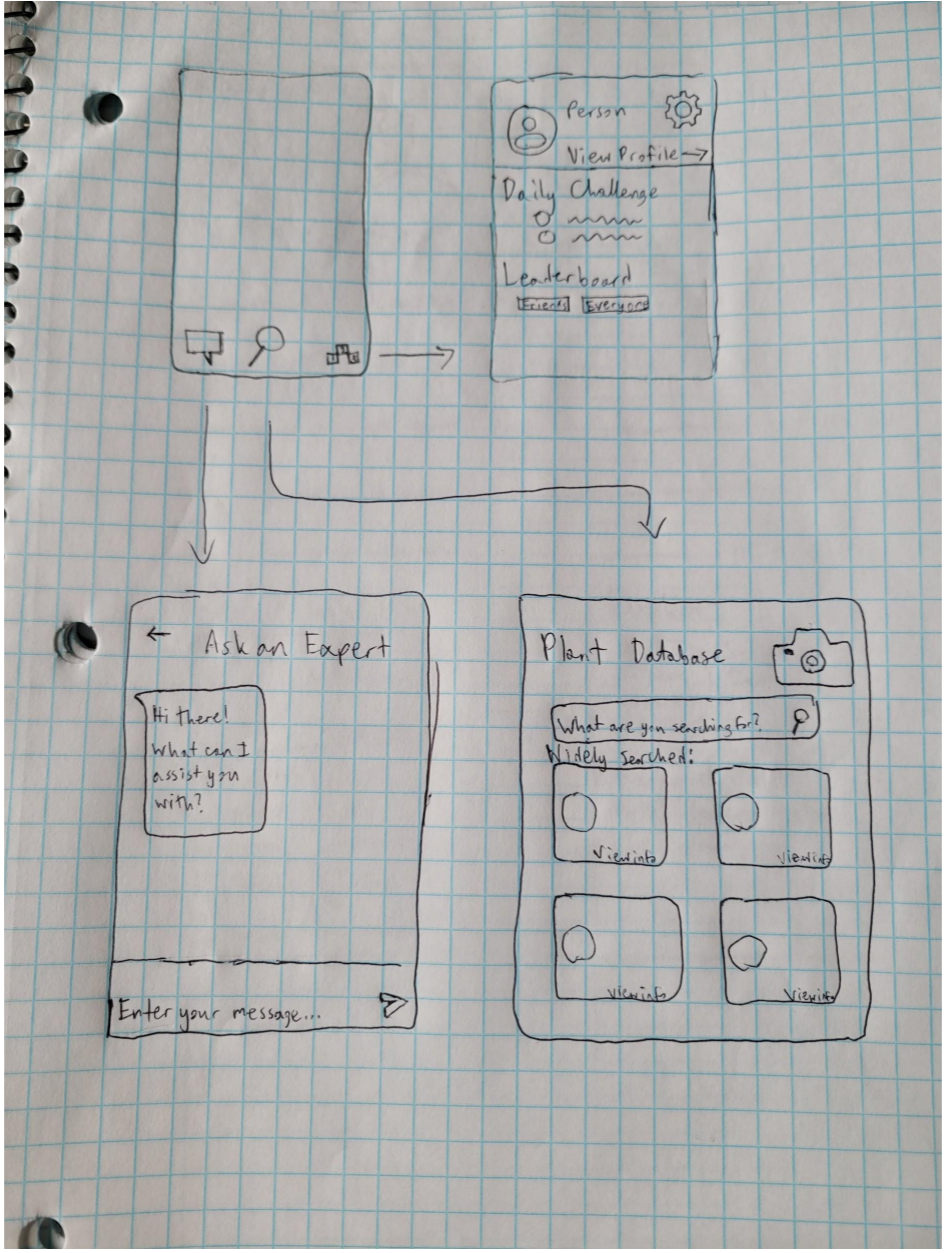 Person
View Profile
Daily Challenge
Leaderboard
Friends Everyone
Ask an Expert
Hi there!
What can I
assist you
with?
Enter your message...
Plant Database
What are you searching for?
Widely searched:
View info
View info
View info
View info